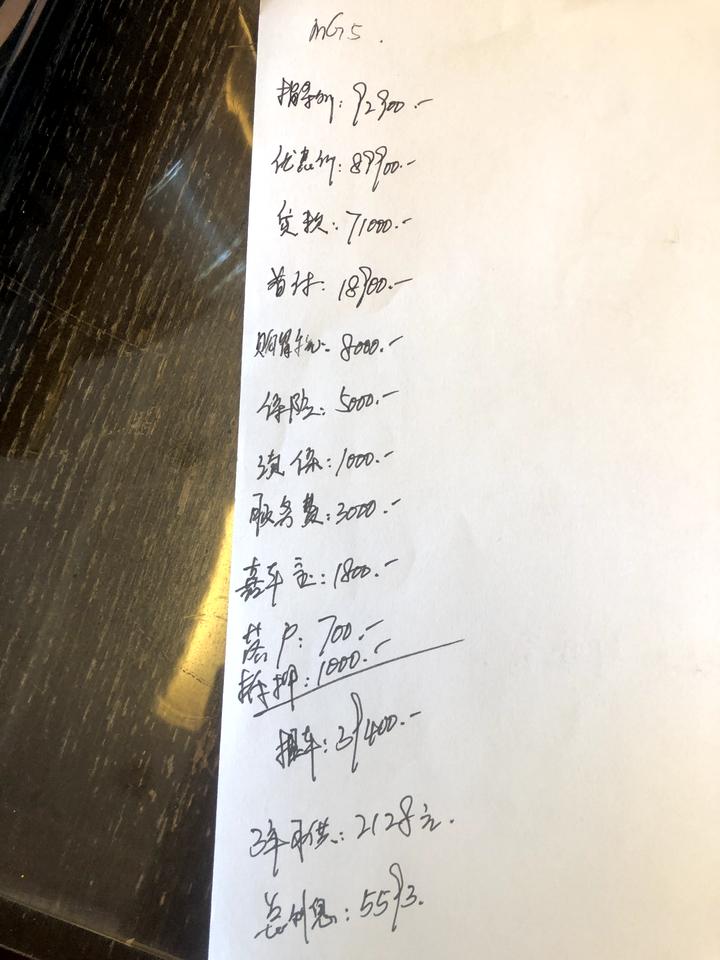 MG5.
指导价:92900.-
优惠价:89900.-
贷款:71000.-
首付:18900.-
购置税:8000.-
保险:5000.-
续保:1000.-
服务费:3000.-
嘉车宝:1800.-
落户:700.-
抵押:1000.-
提车:39400.-
3年月供:2128元.
总利息:5593.